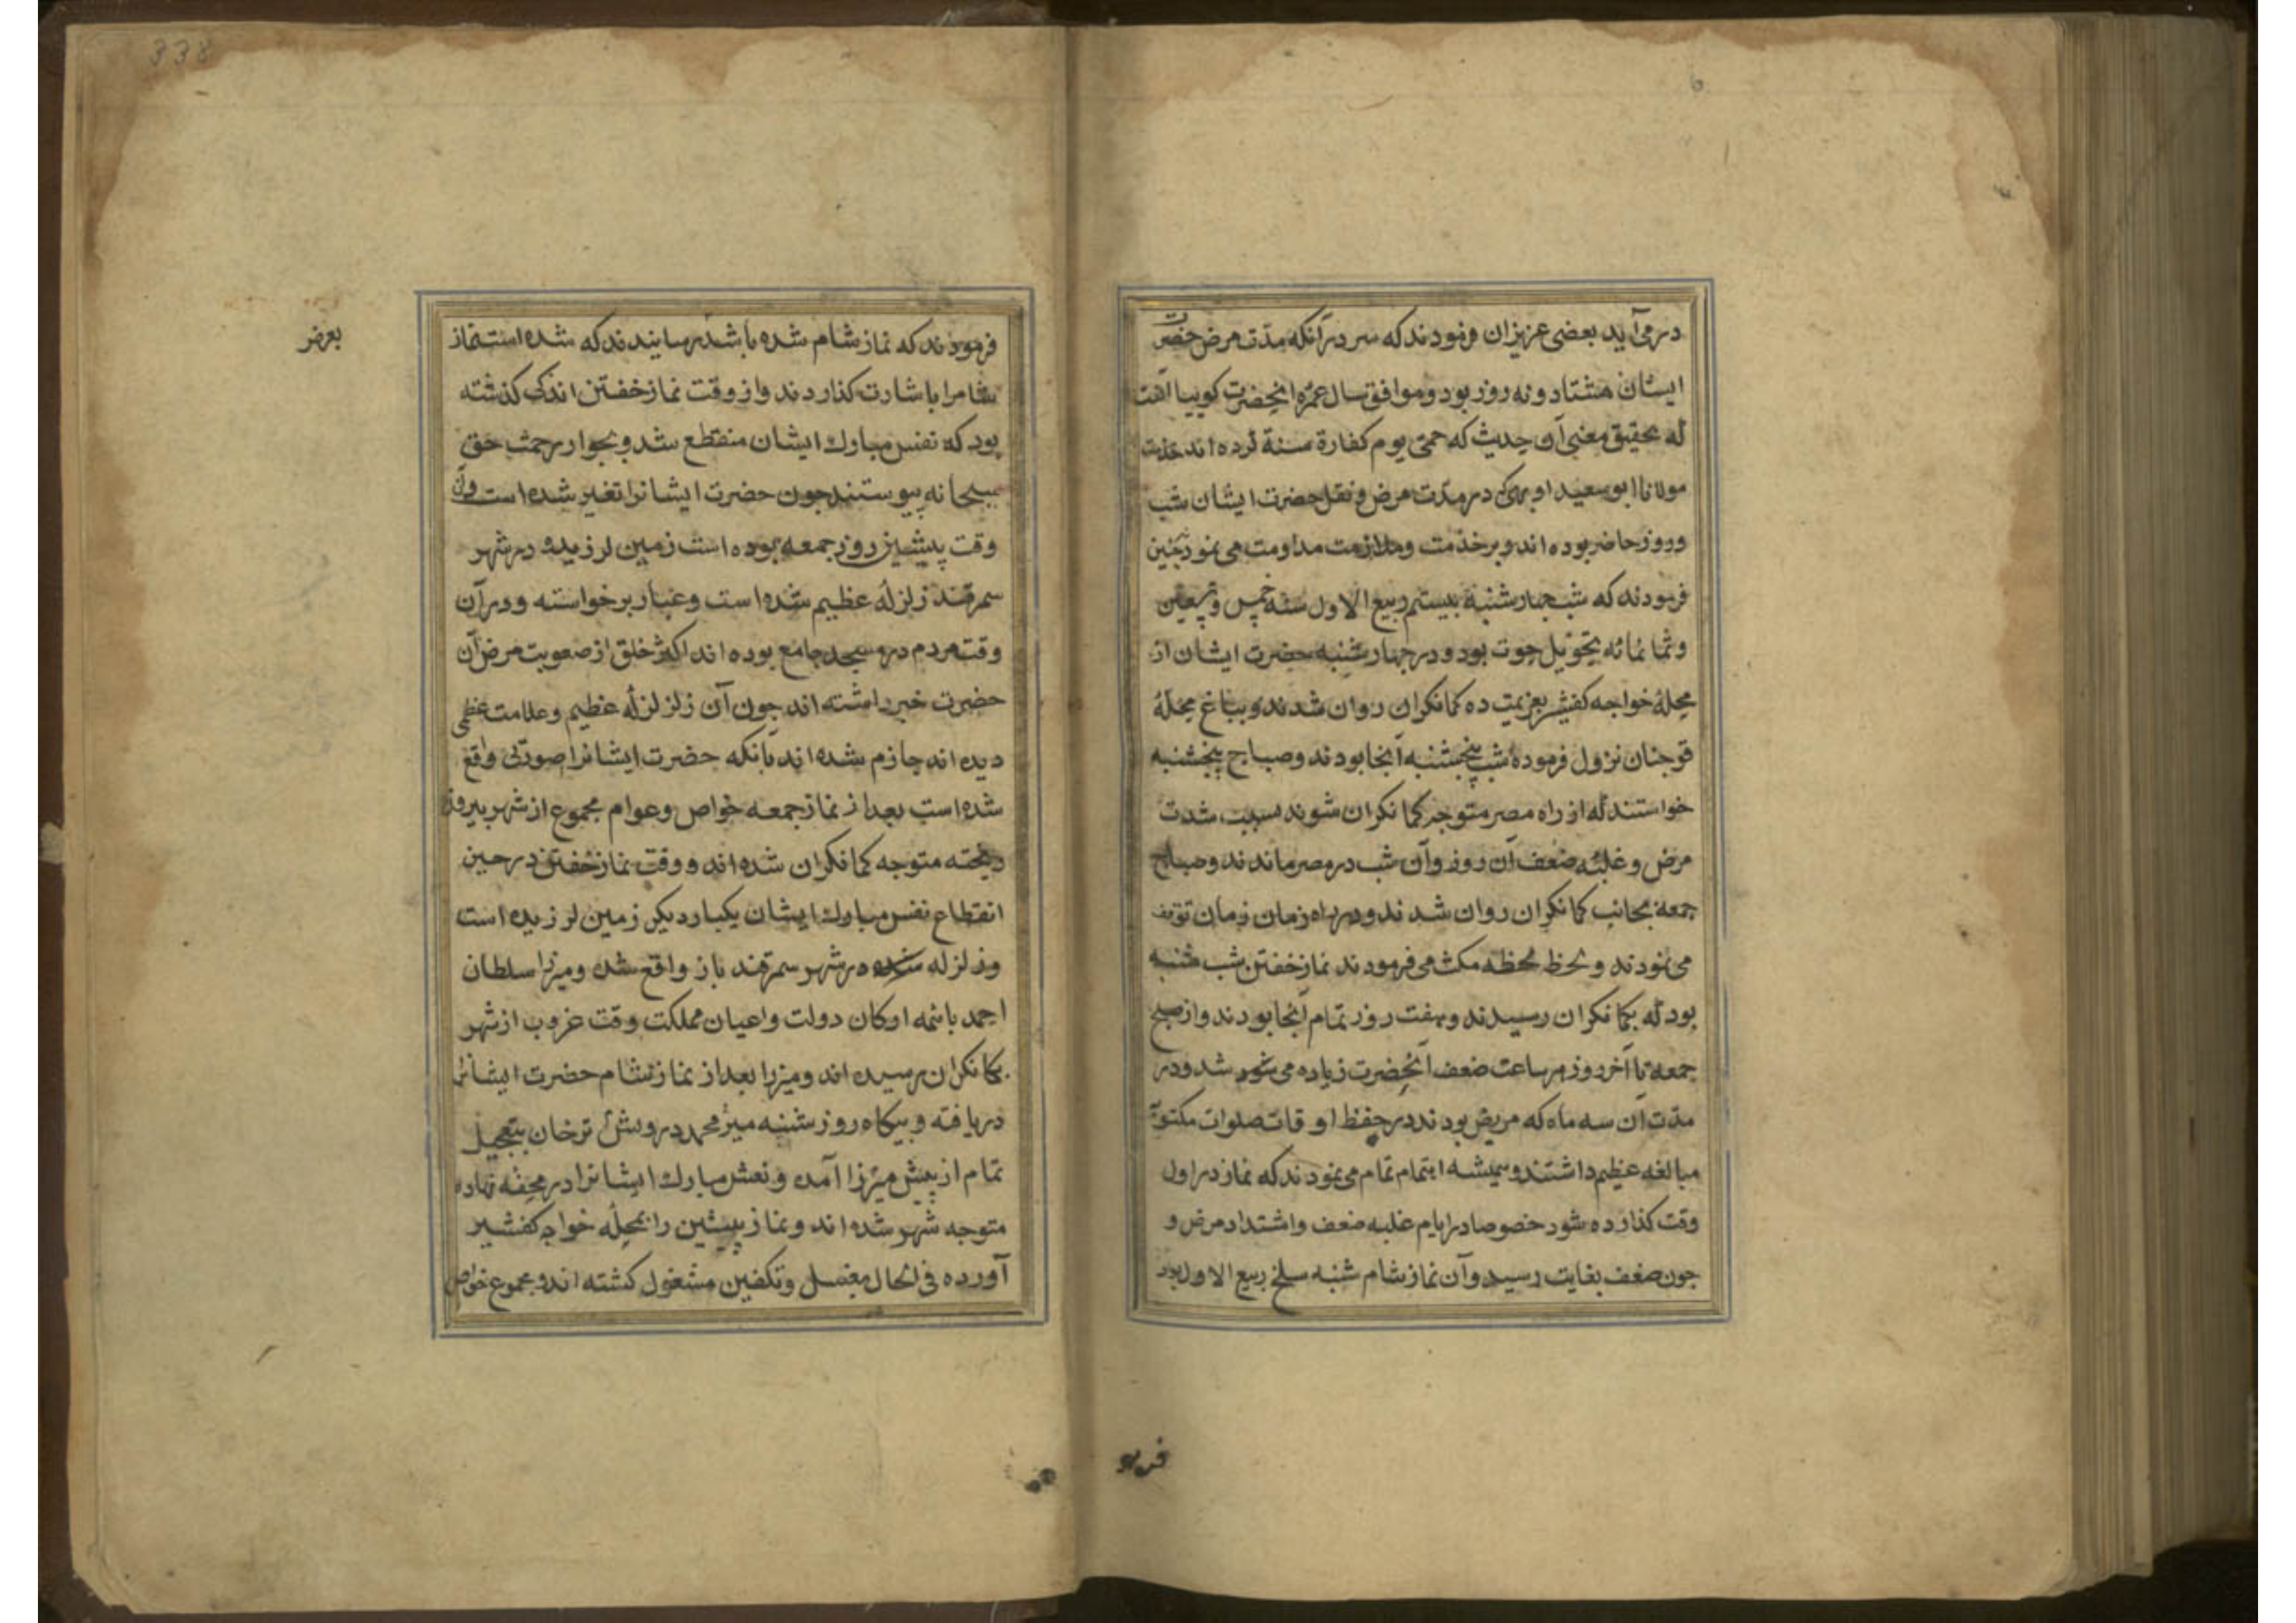 در می آید بعضی عزیزان فرمودند که سر در آنکه مدّت مرض حضرت
ایشان هشتاد و نه روز بود و موافق سال عمره آنحضرت کوییا آنست
که تحقیق معنی آن حدیث که حمّی یوم کفارة سنة کرده اند خدمت
مولانا ابو سعید اوبهی که در مدّت مرض و نقل حضرت ایشان شب
و روز حاضر بوده اند و بر خدمت و ملازمت مداومت می نمود چنین
فرمودند که شب چهارشنبه بیستم ربیع الاول سنه خمس و تسعین
و ثمانمائه تحویل حوت بود و در چهارشنبه حضرت ایشان از
محلهٔ خواجه کفشیر بعزیمت ده کمانکران روان شدند و بباغ محلهٔ
قوجنان نزول فرموده شب پنجشنبه آنجا بودند و صباح پنجشنبه
خواستند که از راه مصر متوجه کمانکران شوند بسبب شدت
مرض و غلبهٔ ضعف آن روز و آن شب در مصر ماندند و صباح
جمعه بجانب کمانکران روان شدند و در راه زمان زمان توقف
می نمودند و لحظه لحظه مکث می فرمودند نماز خفتن شب شنبه
بود که بکمانکران رسیدند و هفت روز تمام آنجا بودند و از صبح
جمعه تا آخر روز هر ساعت ضعف آنحضرت زیاده می شد و در
مدّت آن سه ماه که مریض بودند در حفظ اوقات صلوات مکتوبة
مبالغه عظیم داشتند و همیشه اهتمام تمام می نمودند که نماز در اول
وقت کذارده شود خصوصا در ایام غلبه ضعف و اشتداد مرض و
چون ضعف بغایت رسید و آن نماز شام شنبه سلخ ربیع الاول بود
فرمو
338
فرمودند که نماز شام شده باشد رسانیدند که شده است نماز
شامرا باشارت کذاردند و از وقت نماز خفتن اندکی کذشته
بود که نفس مبارك ایشان منقطع شد و بجوار رحمت حق
سبحانه پیوستند چون حضرت ایشانرا تغیر شده است و آن
وقت پیشین روز جمعه بوده است زمین لرزیده در شهر
سمرقند زلزلهٔ عظیم شده است و غبار برخواسته و در آن
وقت مردم در مسجد جامع بوده اند اکثر خلق از صعوبت مرض آن
حضرت خبر داشته اند چون آن زلزلهٔ عظیم و علامت عظمی
دیده اند جازم شده اند بآنکه حضرت ایشانرا صورتی واقع
شده است بعد از نماز جمعه خواص و عوام مجموع از شهر بیرون
ریخته متوجه کمانکران شده اند و وقت نماز خفتن در حین
انقطاع نفس مبارك ایشان یکبار دیکر زمین لرزیده است
و زلزله در شهر سمرقند باز واقع شده و میرزا سلطان
احمد با همه ارکان دولت و اعیان مملکت وقت غروب از شهر
بکمانکران رسیده اند و میرزا بعد از نماز شام حضرت ایشانرا
دریافته و بیکاه روز شنبه میر محمد درویش ترخان بتعجیل
تمام از پیش میرزا آمده و نعش مبارك ایشانرا در محفه نهاده
متوجه شهر شده اند و نماز پیشین را بمحلهٔ خواجه کفشیر
آورده فی الحال بغسل و تکفین مشغول کشته اند و مجموع خواص